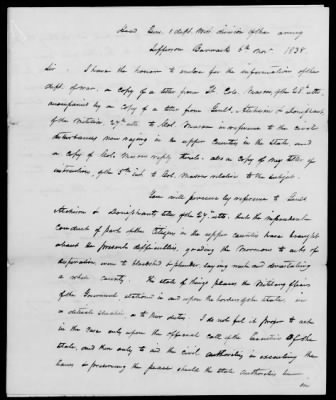 Head Qurs. 1 dept. West. division of the army
Jefferson Barracks 6th Nov 1838
Sir. I have the honor to enclose for the information of the
dept. of war, a copy of a letter from Lt. Col. Mason, of the 28th ulto.
accompanied by a Copy of a letter from Genls. Atchison & Doniphant
of the Militia 27th ulto. to Col. Mason in reference to the civil
disturbances now raging in the upper counties in the state, and
a copy of Col. Mason reply thereto. also a Copy of my letter of
instructions, of the 5th inst. to Col. Mason relative to the subject.
You will perceive by reference to Genls
Atchison & Doniphant letter of the 27th ulto. that the imprudent
conduct of part of the Citizens in the upper counties have brought
about the present difficulties, goading the Mormons to acts of
desperation even to bloodshed & plunder, laying waste and devastating
a whole county. This state of things places the Military Officers
of the Government stationed in and upon the borders of the state, in
a delicate situation as to their duties. I do not feel it proper to act
in the case only upon the official call of the Executive of the
state, and then only to aid the civil authorities in executing the
laws & preserving the peace should the state authorities be